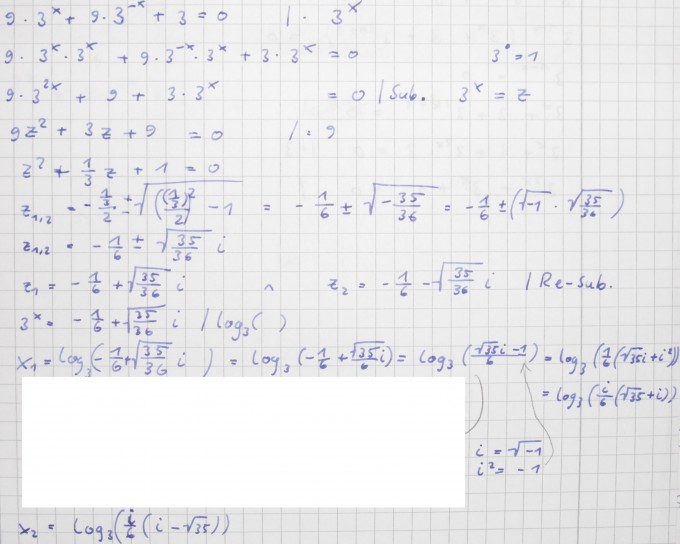 9 · 3^x + 9 · 3^-x + 3 = 0 | · 3^x
9 · 3^x · 3^x + 9 · 3^-x · 3^x + 3 · 3^x = 0 3^0 = 1
9 · 3^2x + 9 + 3 · 3^x = 0 | Sub. 3^x = z
9z² + 3z + 9 = 0 | : 9
z² + 1/3 z + 1 = 0
z1,2 = - (1/3)/2 ± √(((1/3)/2)² - 1) = - 1/6 ± √(-35/36) = - 1/6 ± (√-1 · √(35/36))
z1,2 = - 1/6 ± √(35/36) i
z1 = - 1/6 + √(35/36) i ∧ z2 = - 1/6 - √(35/36) i | Re-Sub.
3^x = - 1/6 + √(35/36) i | log3( )
x1 = log3(- 1/6 + √(35/36) i) = log3(- 1/6 + √35/6 i) = log3((√35 i - 1)/6) = log3(1/6 (√35 i + i²))
= log3(i/6 (√35 + i))
i = √-1
i² = -1
x2 = log3(i/6 (i - √35))